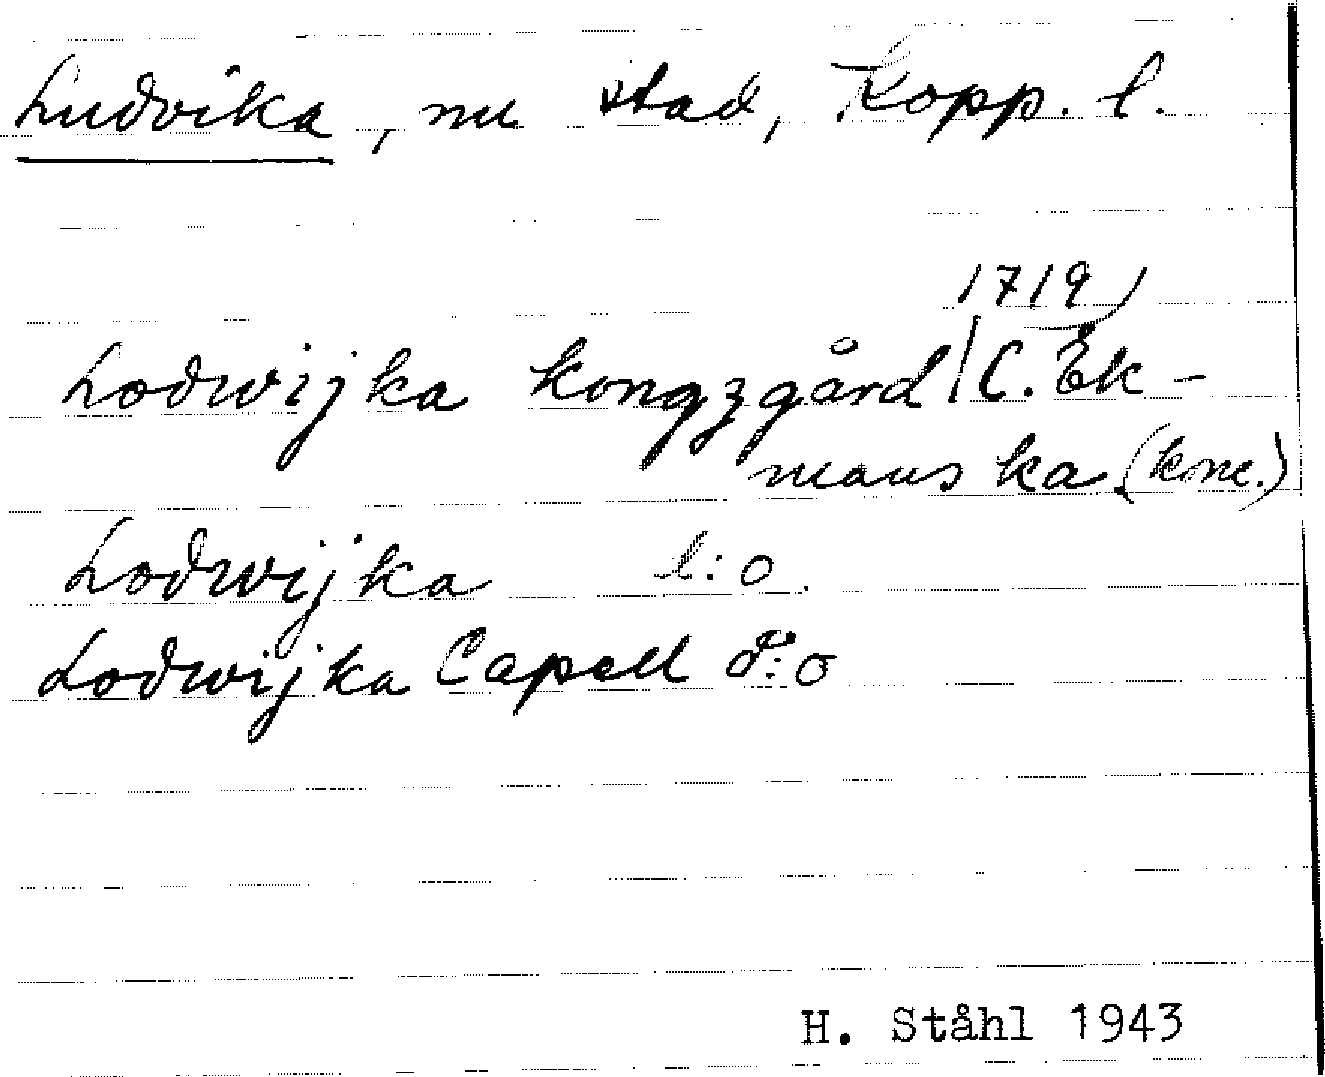 Ludvika, nu stad, Kopp. l.
1719
Lodwijka kongzgård C. Ek-
manska (konc.)
Lodwijka d:o
Lodwijka Capell d:o
H. Ståhl 1943